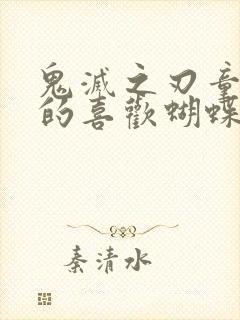 鬼滅之刃童
的喜歡蝴蝶
秦清水